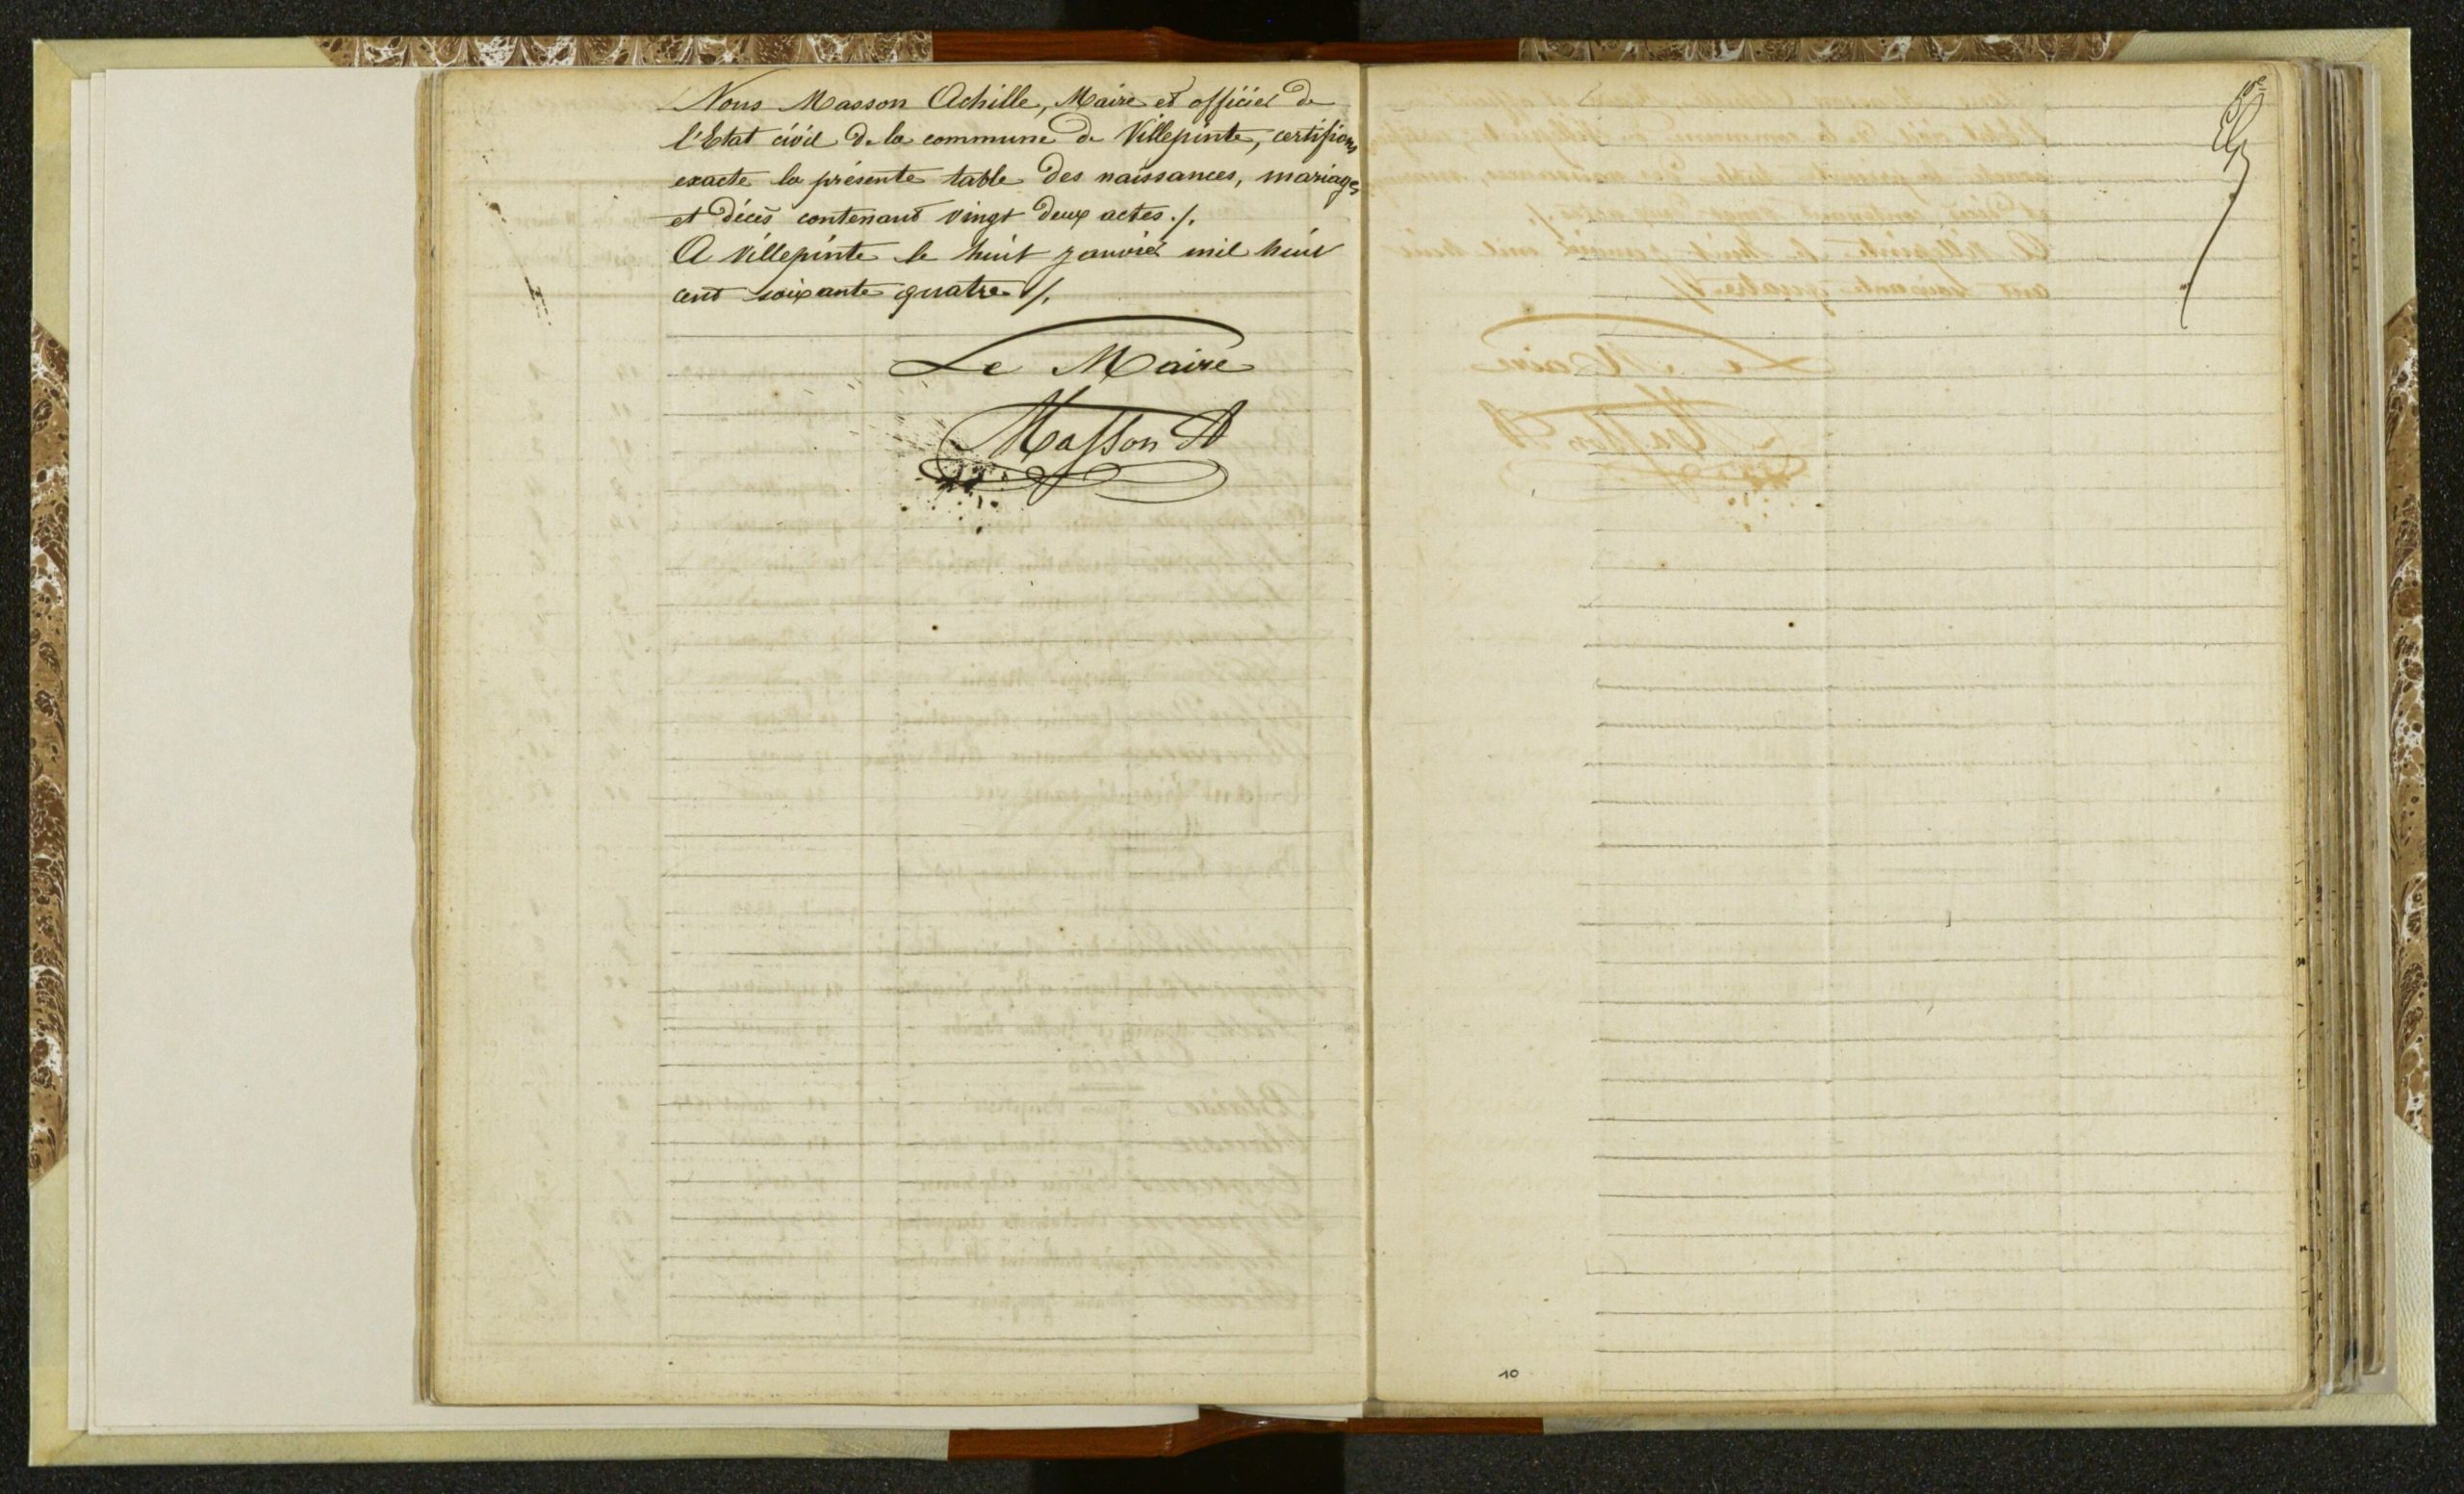 Nous Masson Achille, Maire et officier de
l'Etat civil de la commune de Villepinte, certifions
exacte la présente table des naissances, mariages
et décès contenant vingt deux actes ./.
A Villepinte le huit janvier mil huit
cent soixante quatre ./.
Le Maire
Masson A
10